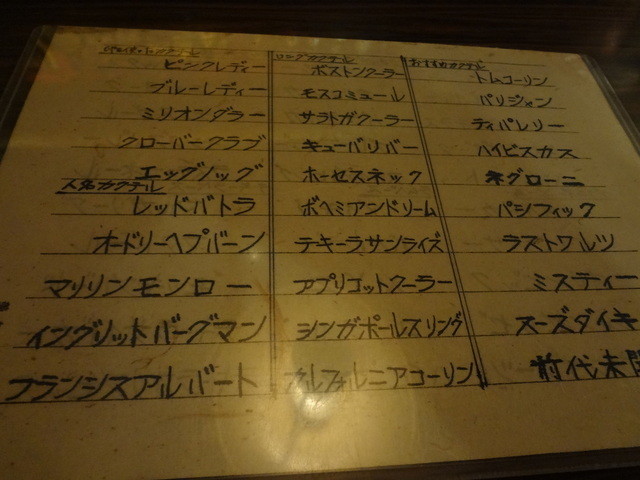 ピンクレディー
ブルーレディー
ミリオンダラー
クローバークラブ
エッグノッグ
人名カクテル
レッドバトラ
オードリーヘプバーン
マリリンモンロー
イングリットバーグマン
フランシスアルバート
ロングカクテル
ボストンクーラー
モスコミュール
サラトガクーラー
キューバリバー
ホーセスネック
ボヘミアンドリーム
テキーラサンライズ
アプリコットクーラー
シンガポールスリング
カルフォルニアコーリン
おすすめカクテル
トムコーリン
パリジャン
ティパレリー
ハイビスカス
ネグローニ
パシフィック
ラストワルツ
ミスティー
スーズダイキ
前代未聞